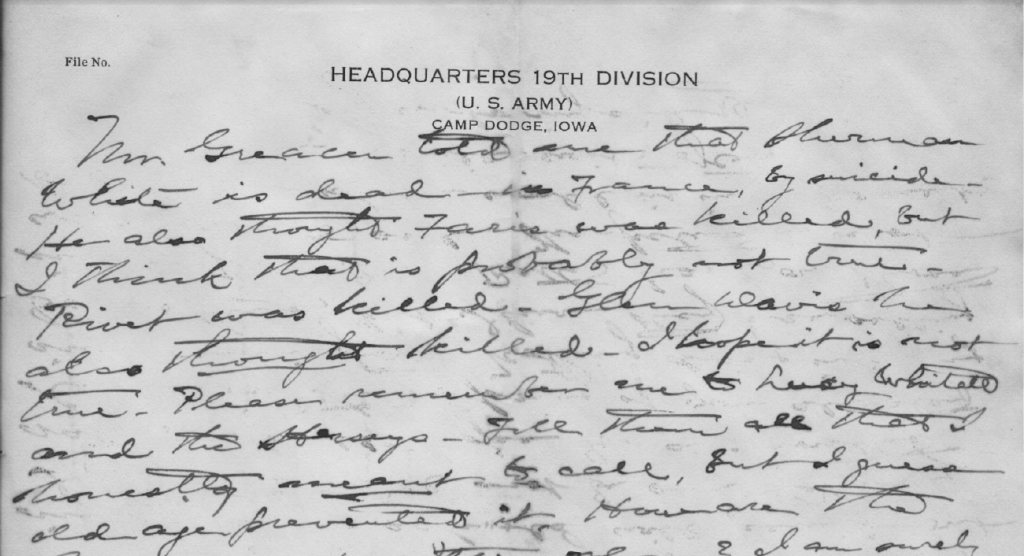 File No.
HEADQUARTERS 19TH DIVISION
(U. S. ARMY)
CAMP DODGE, IOWA
Mr. Greacen told me that Sherman
White is dead - in France, by suicide -
He also thought Faris was killed, but
I think that is probably not true -
Rivet was killed - Glenn Davis he
also thought killed - I hope it is not
true - Please remember me to Lucy
and the Herseys - Tell them all that I
honestly meant to call, but I guess
old age prevented it. How are the
I am surely